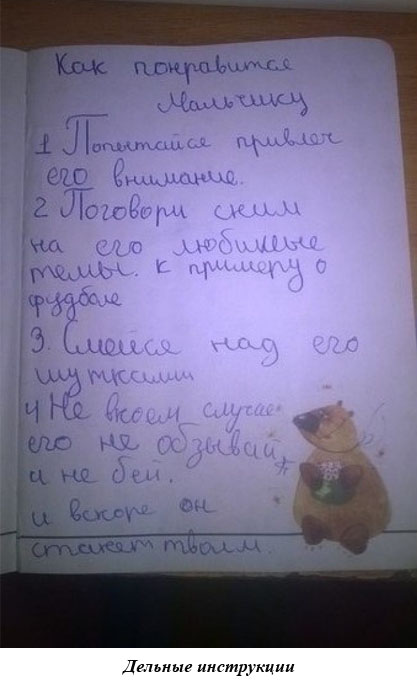 Как понравится
мальчику
1 Попытайся привлеч
его внимание.
2 Поговори сним
на его любимые
темы. к примеру о
фудболе
3. Смейся над его
шутками
4 Не вкоем случае
его не обзывай
и не бей.
и вскоре он
станет твоим.
Дельные инструкции